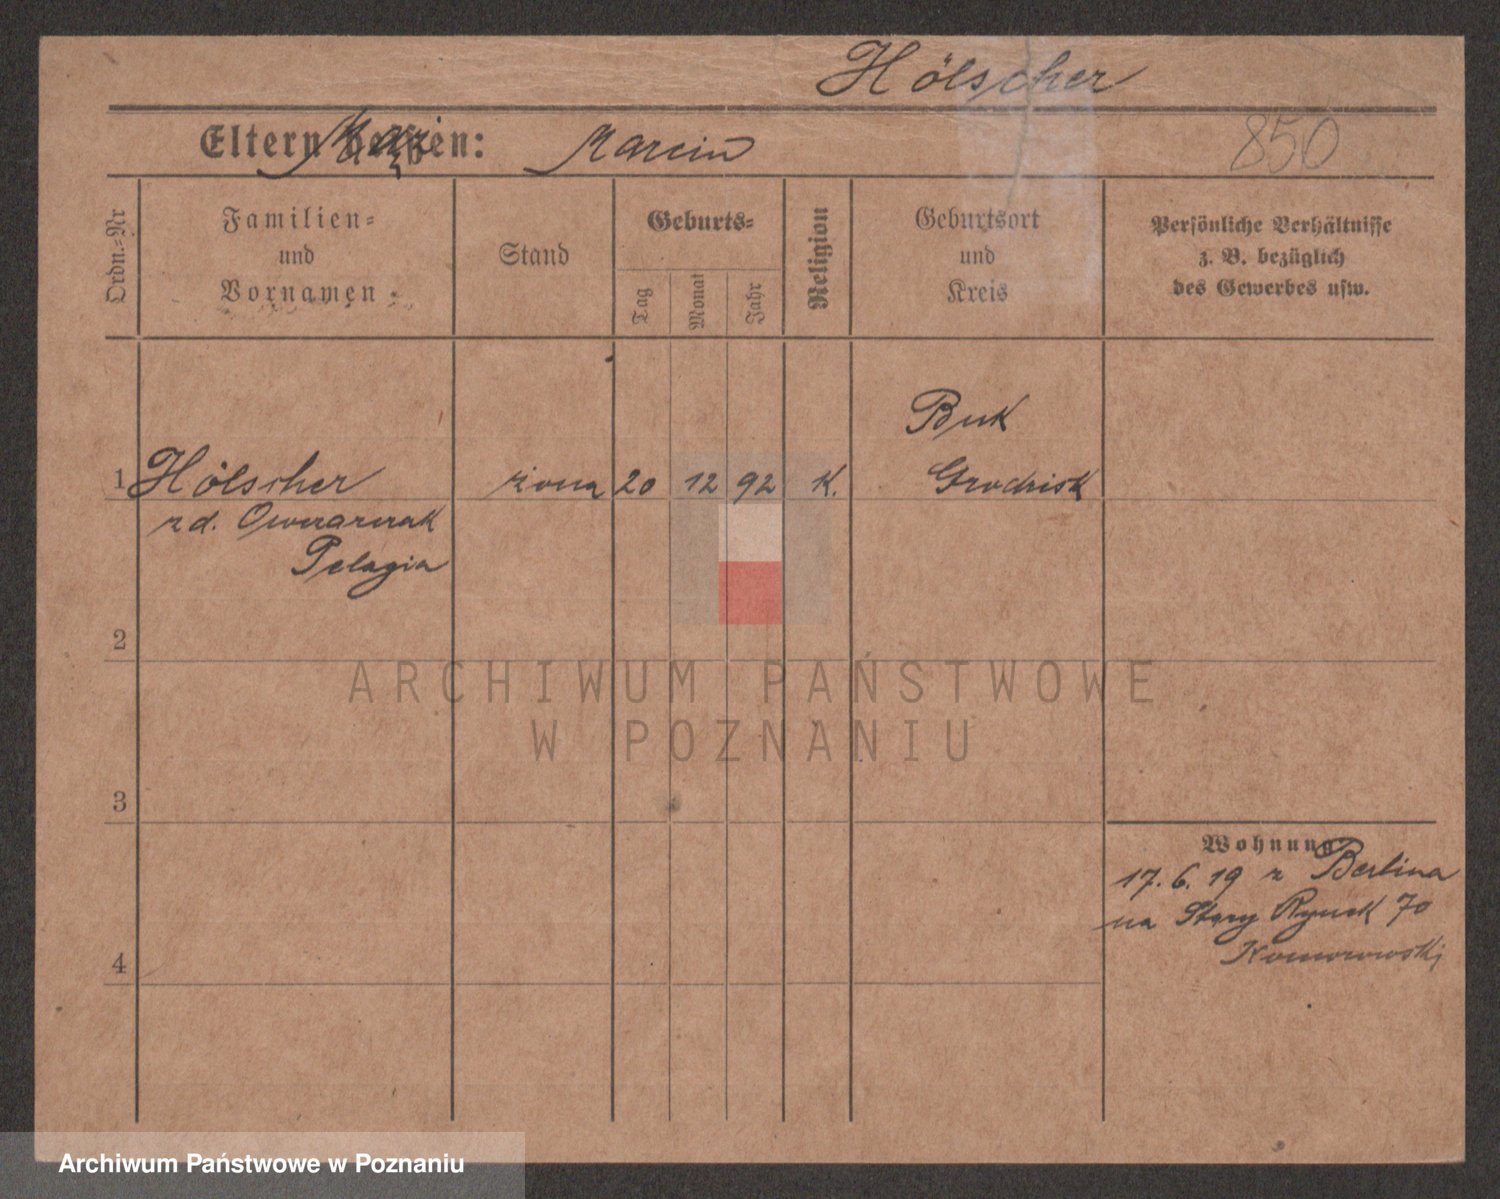 Hölscher
Eltern heißen: Mąż Marcin
850
Ordn.=Nr
Familien=
und
Vornamen
Stand
Geburts=
Tag
Monat
Jahr
Religion
Geburtsort
und
Kreis
Persönliche Verhältnisse
z. B. bezüglich
des Gewerbes usw.
Buk
1 Hölscher żona 20 12 92 K. Grodzisk
zd. Owczarczak
Pelagia
2
3
4
Wohnung
17. 6. 19 z Berlina
na Stary Rynek 70
Komorowski
ARCHIWUM PAŃSTWOWE
W POZNANIU
Archiwum Państwowe w Poznaniu